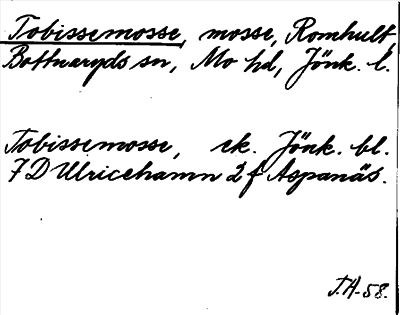 Tobissemosse, mosse, Romhult,
Bottnaryds sn, Mo hd, Jönk. l.
Tobissemosse, ek. Jönk. bl.
7 D Ulricehamn 2 f Aspanäs.
J.H-58.